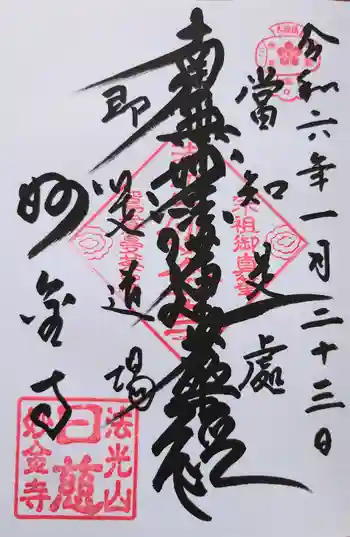 令和六年一月二十三日
當知是處
南無妙法蓮華経
即是道場
妙金寺
宗祖御真
法光山
日慈
妙金寺